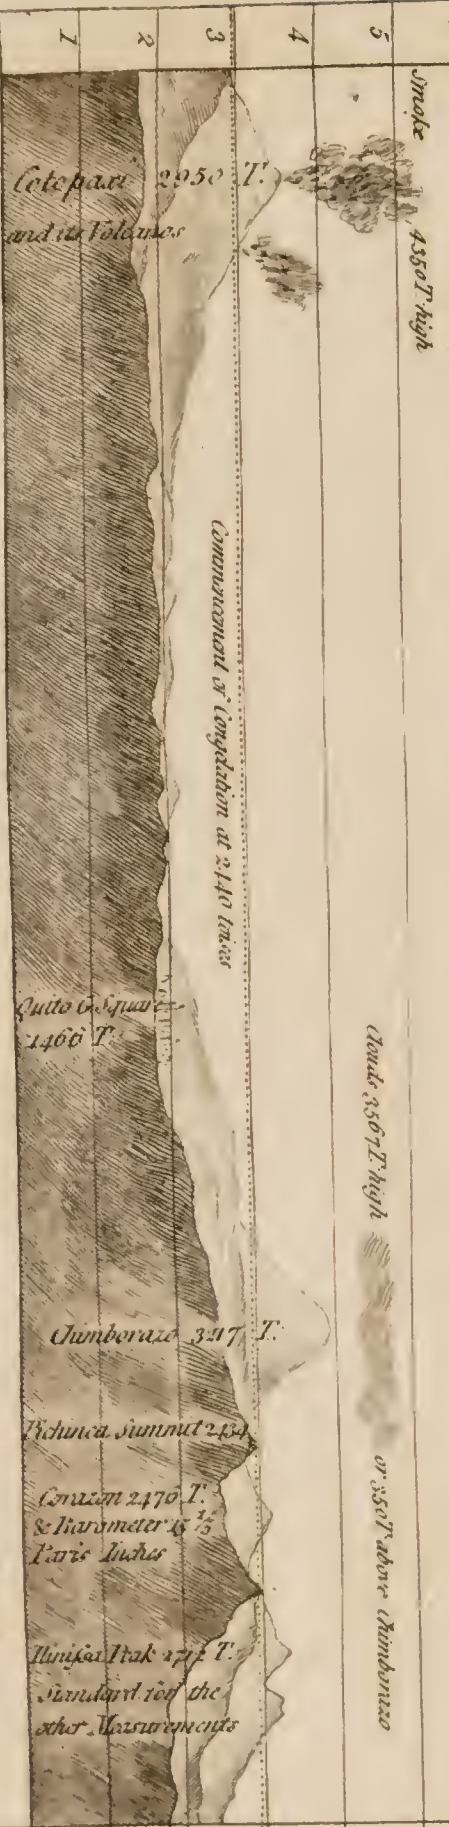 1 2 3 4 5
Smoke 4350 T. high
Cotopaxi 2950 T.
and its Volcanos
Commencement of Congelation at 2440 toises
Quito G. Square
1466 T.
Clouds 3567 T. high or 350 T above Chimborazo
Chimborazo 3217 T.
Pichinca Summit 2434
Corazon 2476 T.
& Barometer 15
Paris Inches
Ilinissa Peak T.
Standard for the
other Measurements